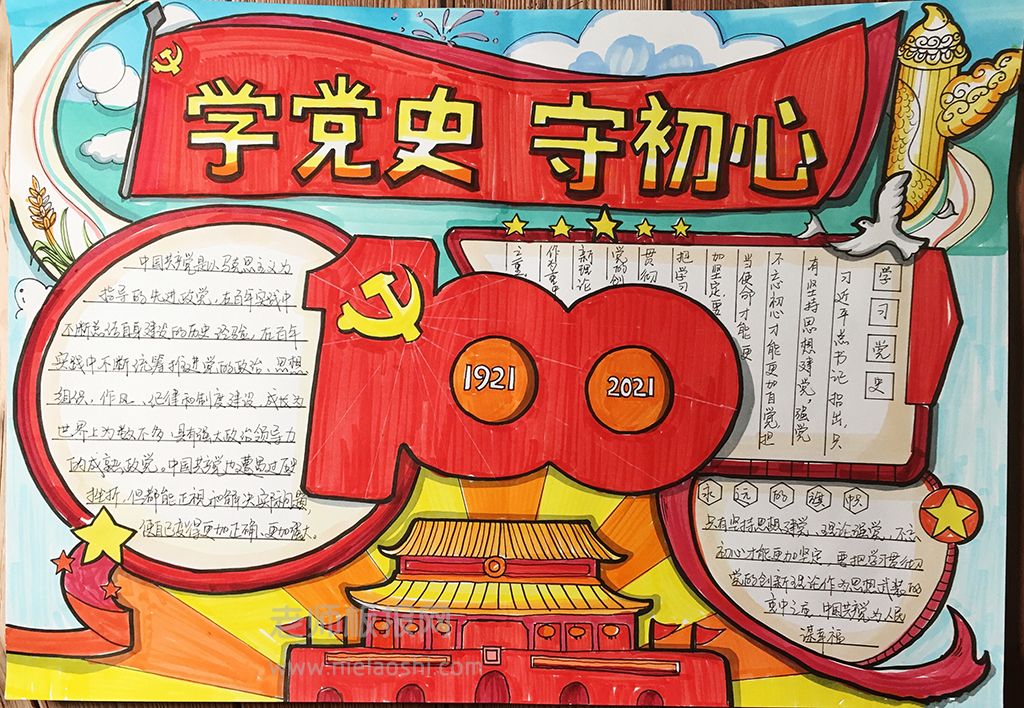 学党史 守初心
中国共产党是以马克思主义为
指导的先进政党，在百年实践中
不断总结自身建设的历史经验，在百年
实践中不断统筹推进党的政治、思想
组织、作风、纪律和制度建设，成长为
世界上为数不多、具有强大政治领导力
的成熟政党。中国共产党也遭遇过历史
挫折，但都能正视和解决实际问题，
使自己变得更加正确、更加强大。
1921
2021
学习党史
习近平总书记指出，只
有坚持思想建党，强党
不忘初心才能更加自觉担
当使命才能更
加坚定，要
把学习
贯彻
党的创
新理论
作为思
永远的旗帜
只有坚持思想建党、理论强党，不忘
初心才能更加坚定，要把学习贯彻
党的创新理论作为思想武装的
重中之重，中国共产党为人民
谋幸福
老师板报网
www.melaoshi.com